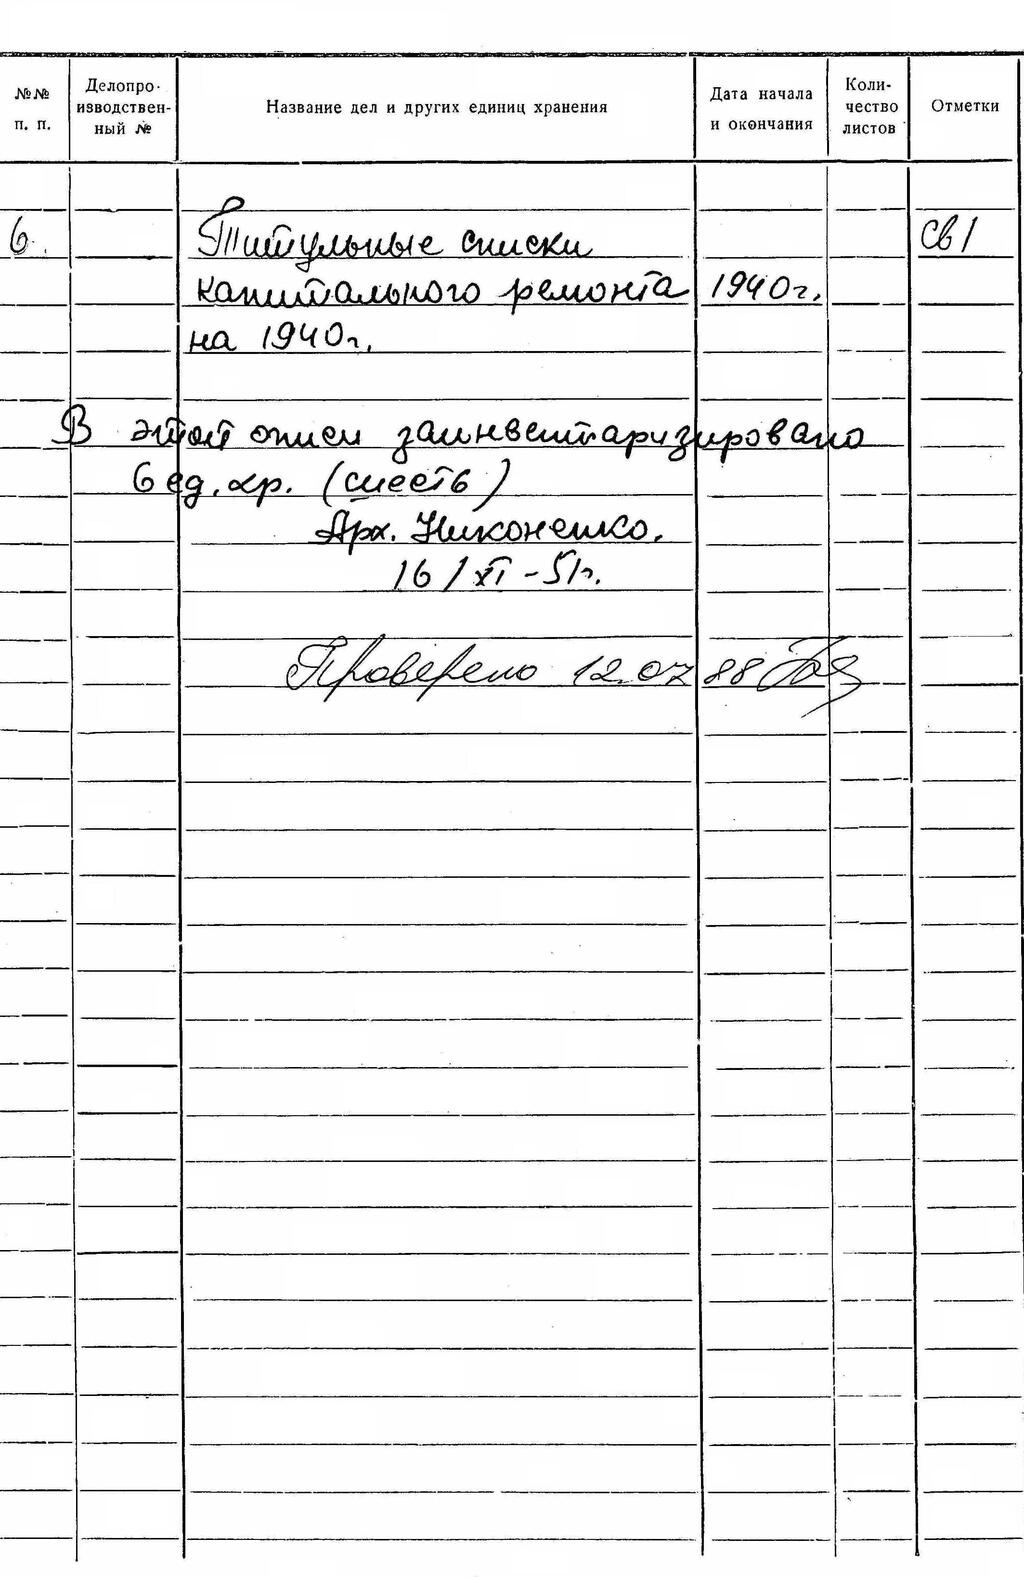 №№ п. п. Делопроизводственный № Название дел и других единиц хранения Дата начала и окончания Количество листов Отметки
6. Титульные списки св 1
капитального ремонта 1940г.
на 1940г.
В этой описи заинвентаризировано
6 ед. хр. (шесть)
Арх. Никоненко.
16/XI-51г.
Проверено 12.07.88